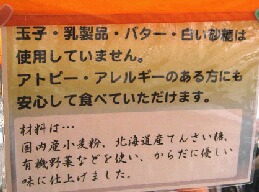 玉子・乳製品・バター・白い砂糖は
使用していません。
アトピー・アレルギーのある方にも
安心して食べていただけます。
材料は…
国内産小麦粉、北海道産てんさい糖、
有機野菜などを使い、からだに優しい
味に仕上げました。